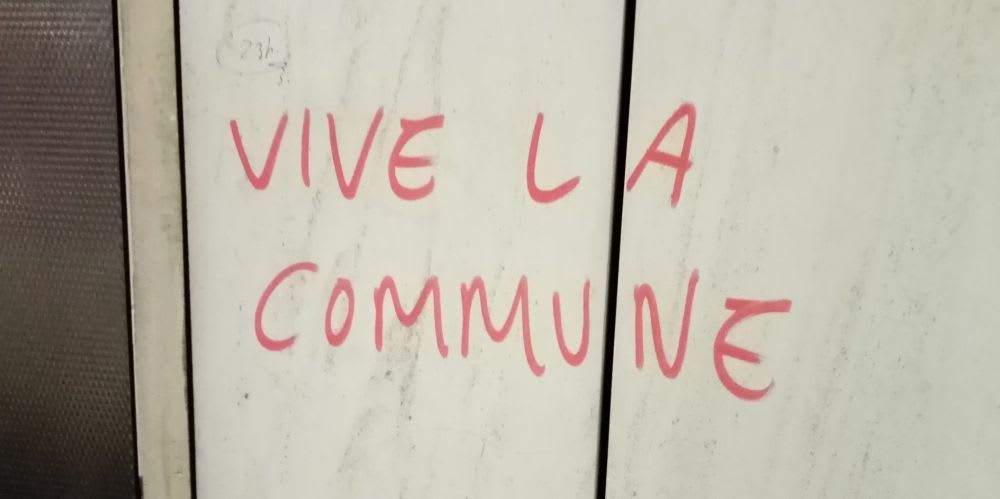 VIVE LA
COMMUNE